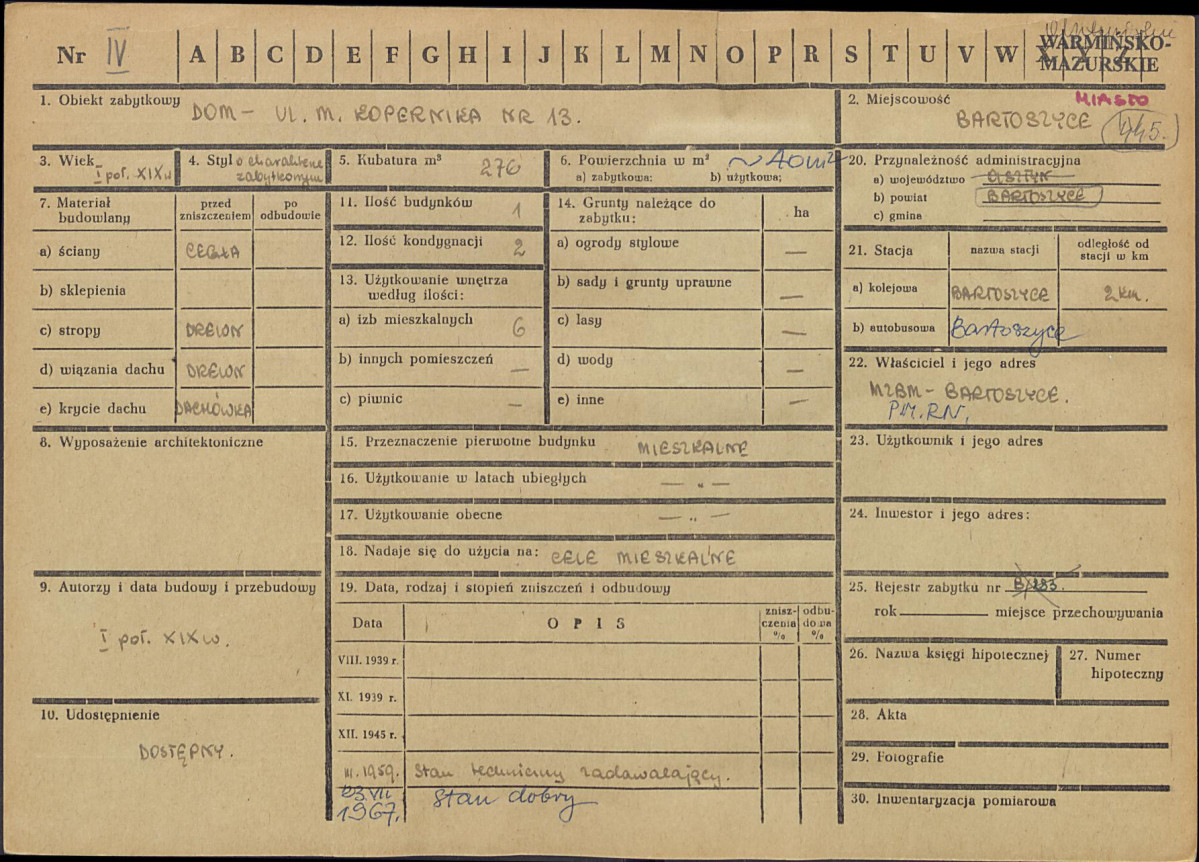 Nr IV A B C D E F G H I J K L M N O P R S T U V W X Y Z
WARMIŃSKO-
MAZURSKIE
1. Obiekt zabytkowy
DOM - UL. M. KOPERNIKA NR 13.
2. Miejscowość
MIASTO
BARTOSZYCE
445.
3. Wiek
I poł. XIX w
4. Styl o charakterze
zabytkowym
5. Kubatura m³
276
6. Powierzchnia w m² ~ 40m²
a) zabytkowa: b) użytkowa:
7. Materiał budowlany
przed zniszczeniem
po odbudowie
a) ściany CEGŁA
b) sklepienia
c) stropy DREWN
d) wiązania dachu DREWN
e) krycie dachu DACHÓWKA
8. Wyposażenie architektoniczne
9. Autorzy i data budowy i przebudowy
I poł. XIX w.
10. Udostępnienie
DOSTĘPNY.
11. Ilość budynków 1
12. Ilość kondygnacji 2
13. Użytkowanie wnętrza
według ilości:
a) izb mieszkalnych 6
b) innych pomieszczeń —
c) piwnic —
14. Grunty należące do
zabytku: ha
a) ogrody stylowe —
b) sady i grunty uprawne —
c) lasy —
d) wody —
e) inne —
15. Przeznaczenie pierwotne budynku MIESZKALNE
16. Użytkowanie w latach ubiegłych — „ —
17. Użytkowanie obecne — „ —
18. Nadaje się do użycia na: CELE MIESZKALNE
19. Data, rodzaj i stopień zniszczeń i odbudowy
Data
O P I S
znisz-
czenia
%
odbu-
dowa
%
VIII. 1939 r.
XI. 1939 r.
XII. 1945 r.
III. 1959. Stan techniczny zadawalający.
23.VII
1967. Stan dobry
20. Przynależność administracyjna
a) województwo OLSZTYN
b) powiat BARTOSZYCE
c) gmina
21. Stacja
nazwa stacji
odległość od
stacji w km
a) kolejowa BARTOSZYCE 2 km.
b) autobusowa Bartoszyce
22. Właściciel i jego adres
MZBM - BARTOSZYCE.
P.M.RN.
23. Użytkownik i jego adres
24. Inwestor i jego adres:
25. Rejestr zabytku nr B/283.
rok miejsce przechowywania
26. Nazwa księgi hipotecznej
27. Numer
hipoteczny
28. Akta
29. Fotografie
30. Inwentaryzacja pomiarowa